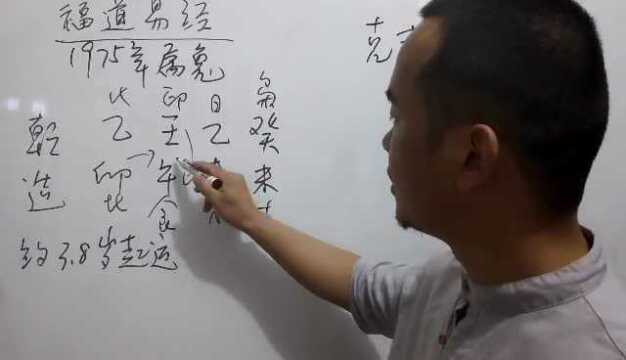 福道易经
克
1975年属兔
比 印 日 枭
乾 乙 壬 乙 癸
造 卯 午 未
比 食
约3.8岁起运